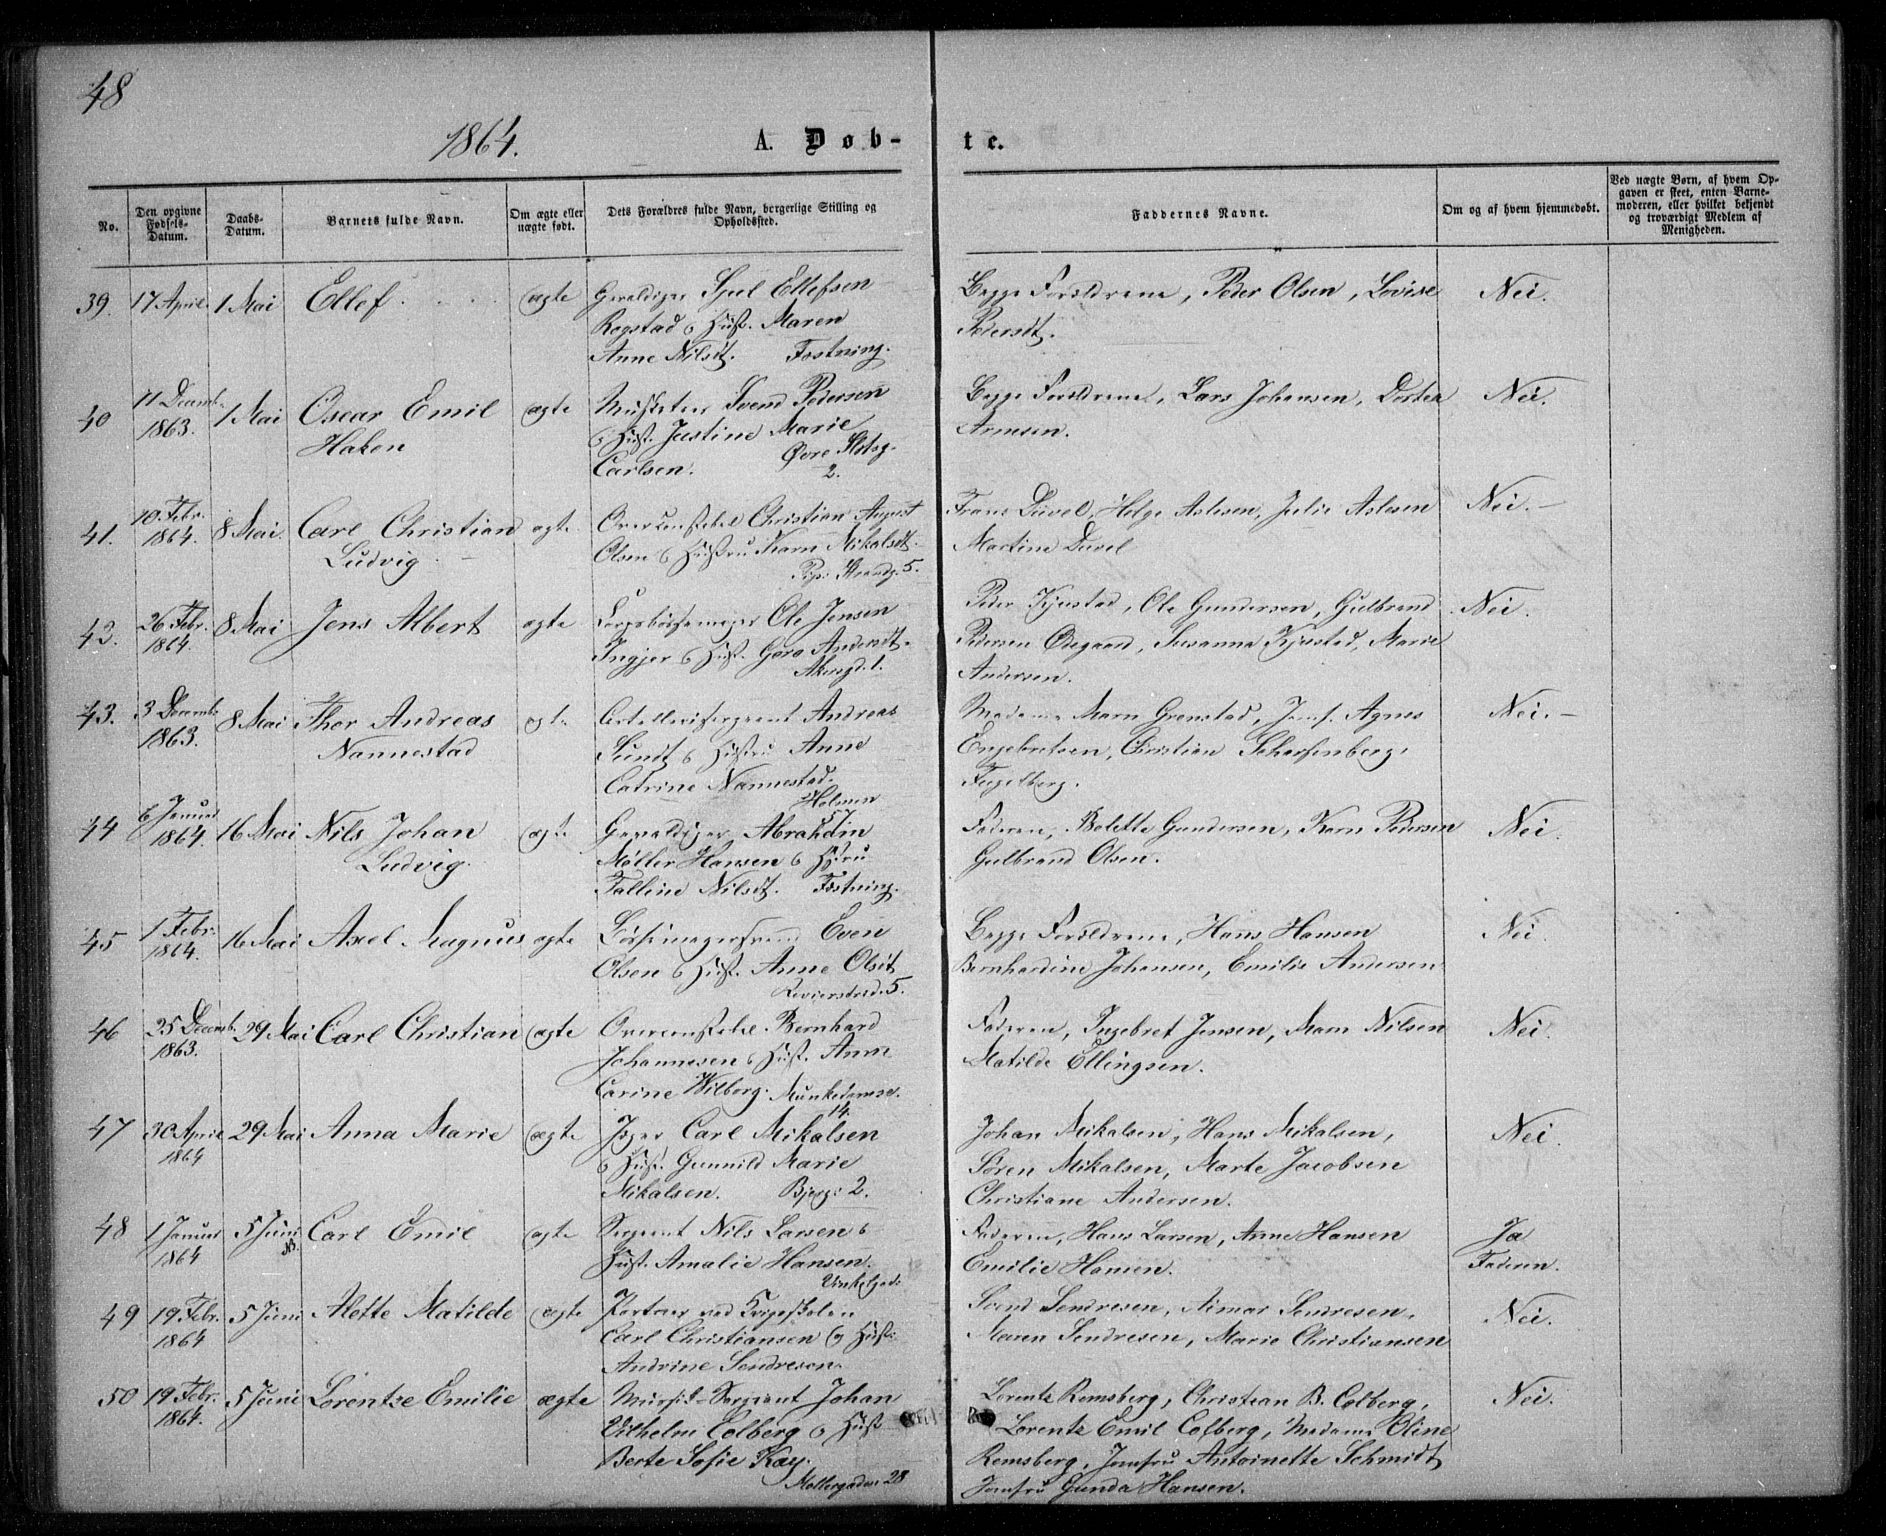 48
1864.
A. Døb-
te.
No.
Den opgivne Fødsels-Datum.
Daabs-Datum.
Barnets fulde Navn.
Om ægte eller uægte født.
Dets Forældres fulde Navn, borgerlige Stilling og Opholdssted.
Faddernes Navne.
Om og af hvem hjemmedøbt.
Ved uægte Børn, af hvem Opgaven er skeet, enten Barnemoderen, eller hvilket bekjendt og troværdigt Medlem af Menigheden.
39. 17 April 1 Mai Ellef ægte Gevaldiger Ellefsen Begge Forældrene, Peder Olsen, Lovise Nei.
Rogstad o Hust. Maren Pedersdt.
Anne Nilsdt. Fæstning.
40 11 Decemb. 1 Mai Oscar Emil ægte Musketeer Svend Pedersen Begge Forældrene, Lars Johansen, Dortea Nei.
1863. Haken o Hust. Justine Marie
Carlsen. Øvre Slotsg.
2.
41. 10 Febr. 8 Mai Carl Christian ægte Christian August Frans Duvel, Helge Aslesen, Julie Aslesen Nei.
1864. Ludvig Olsen o Hustru Karn Mikalsdt. Martine Duvel
5.
42. 26 Febr. 8 Mai Jens Albert ægte Ole Jensen Peder Kjustad, Ole Gundersen, Gulbrand Nei.
1864. Ingjer o Hust. Goro Andersdt. Pedersen Øegaard, Susanna Kjustad, Marie
Akersgd. 1. Andersen.
43. 3 Decemb. 8 Mai Thor Andreas ægte Artillerisergeant Andreas Madame Maren Grenstad, Jomf. Agnes Nei.
1863. Nannestad Sundt o Hustru Anne Engebretsen, Christian Scharfenberg,
Catrine Nannestad. Fugelberg.
Holmen
57
44 6 Januar 16 Mai Nils Johan ægte Gevaldiger Abraham Faderen, Bolette Gundersen, Karn Pedersen Nei.
1864. Ludvig. Møller Hansen o Hustru Gulbrand Olsen.
Talline Nilsdt. Fæstning.
45 1 Febr. 16 Mai Axel Magnus ægte Bøssemagersvend Even Begge Forældrene, Hans Hansen Nei.
1864. Olsen o Hust. Anne Olsdt. Bernhardine Johansen, Emilie Andersen
Revierstred. 5.
46 25 Decemb. 29 Mai Carl Christian ægte Bernhard Faderen, Ingebret Jensen, Maren Nilsen Nei.
1863. Johannesen o Hust. Anne Matilde Ellingsen.
Carine Wilberg. Munkedamsv.
14.
47 30 April 29 Mai Anna Marie ægte Jæger Carl Mikalsen Johan Mikalsen, Hans Mikalsen, Nei.
1864 o Hust. Gunnild Marie Søren Mikalsen, Marte Jacobsen
Mikalsen. Bjerg: 2. Christiane Andersen.
48 1 Januar 5 Juni Carl Emil ægte Sergeant Nils Larsen o Faderen, Hans Larsen, Anne Hansen Ja
1864 Hust. Amalie Hansen. Emilie Hansen. Faderen.
Vinkelgad:
49 19 Febr. 5 Juni Alette Matilde ægte Portner ved Krigsskolen Svend Sendresen, Aimar Sendresen, Nei.
1864 Carl Christiansen og Hust: Maren Sendresen, Marie Christiansen
Andrine Sendresen.
50 19 Febr. 5 Juni Lorentze Emilie ægte Musik-Sergeant Johan Lorentz Remsberg, Christian B. Colberg, Nei.
1864. Vilhelm Colberg o Hust Lorentz Emil Colberg, Madame Oline
Berte Sofie Kay. Remsberg, Jomfru Antoinette Schmidt
Møllergaden 28 Jomfru Gunda Hansen.